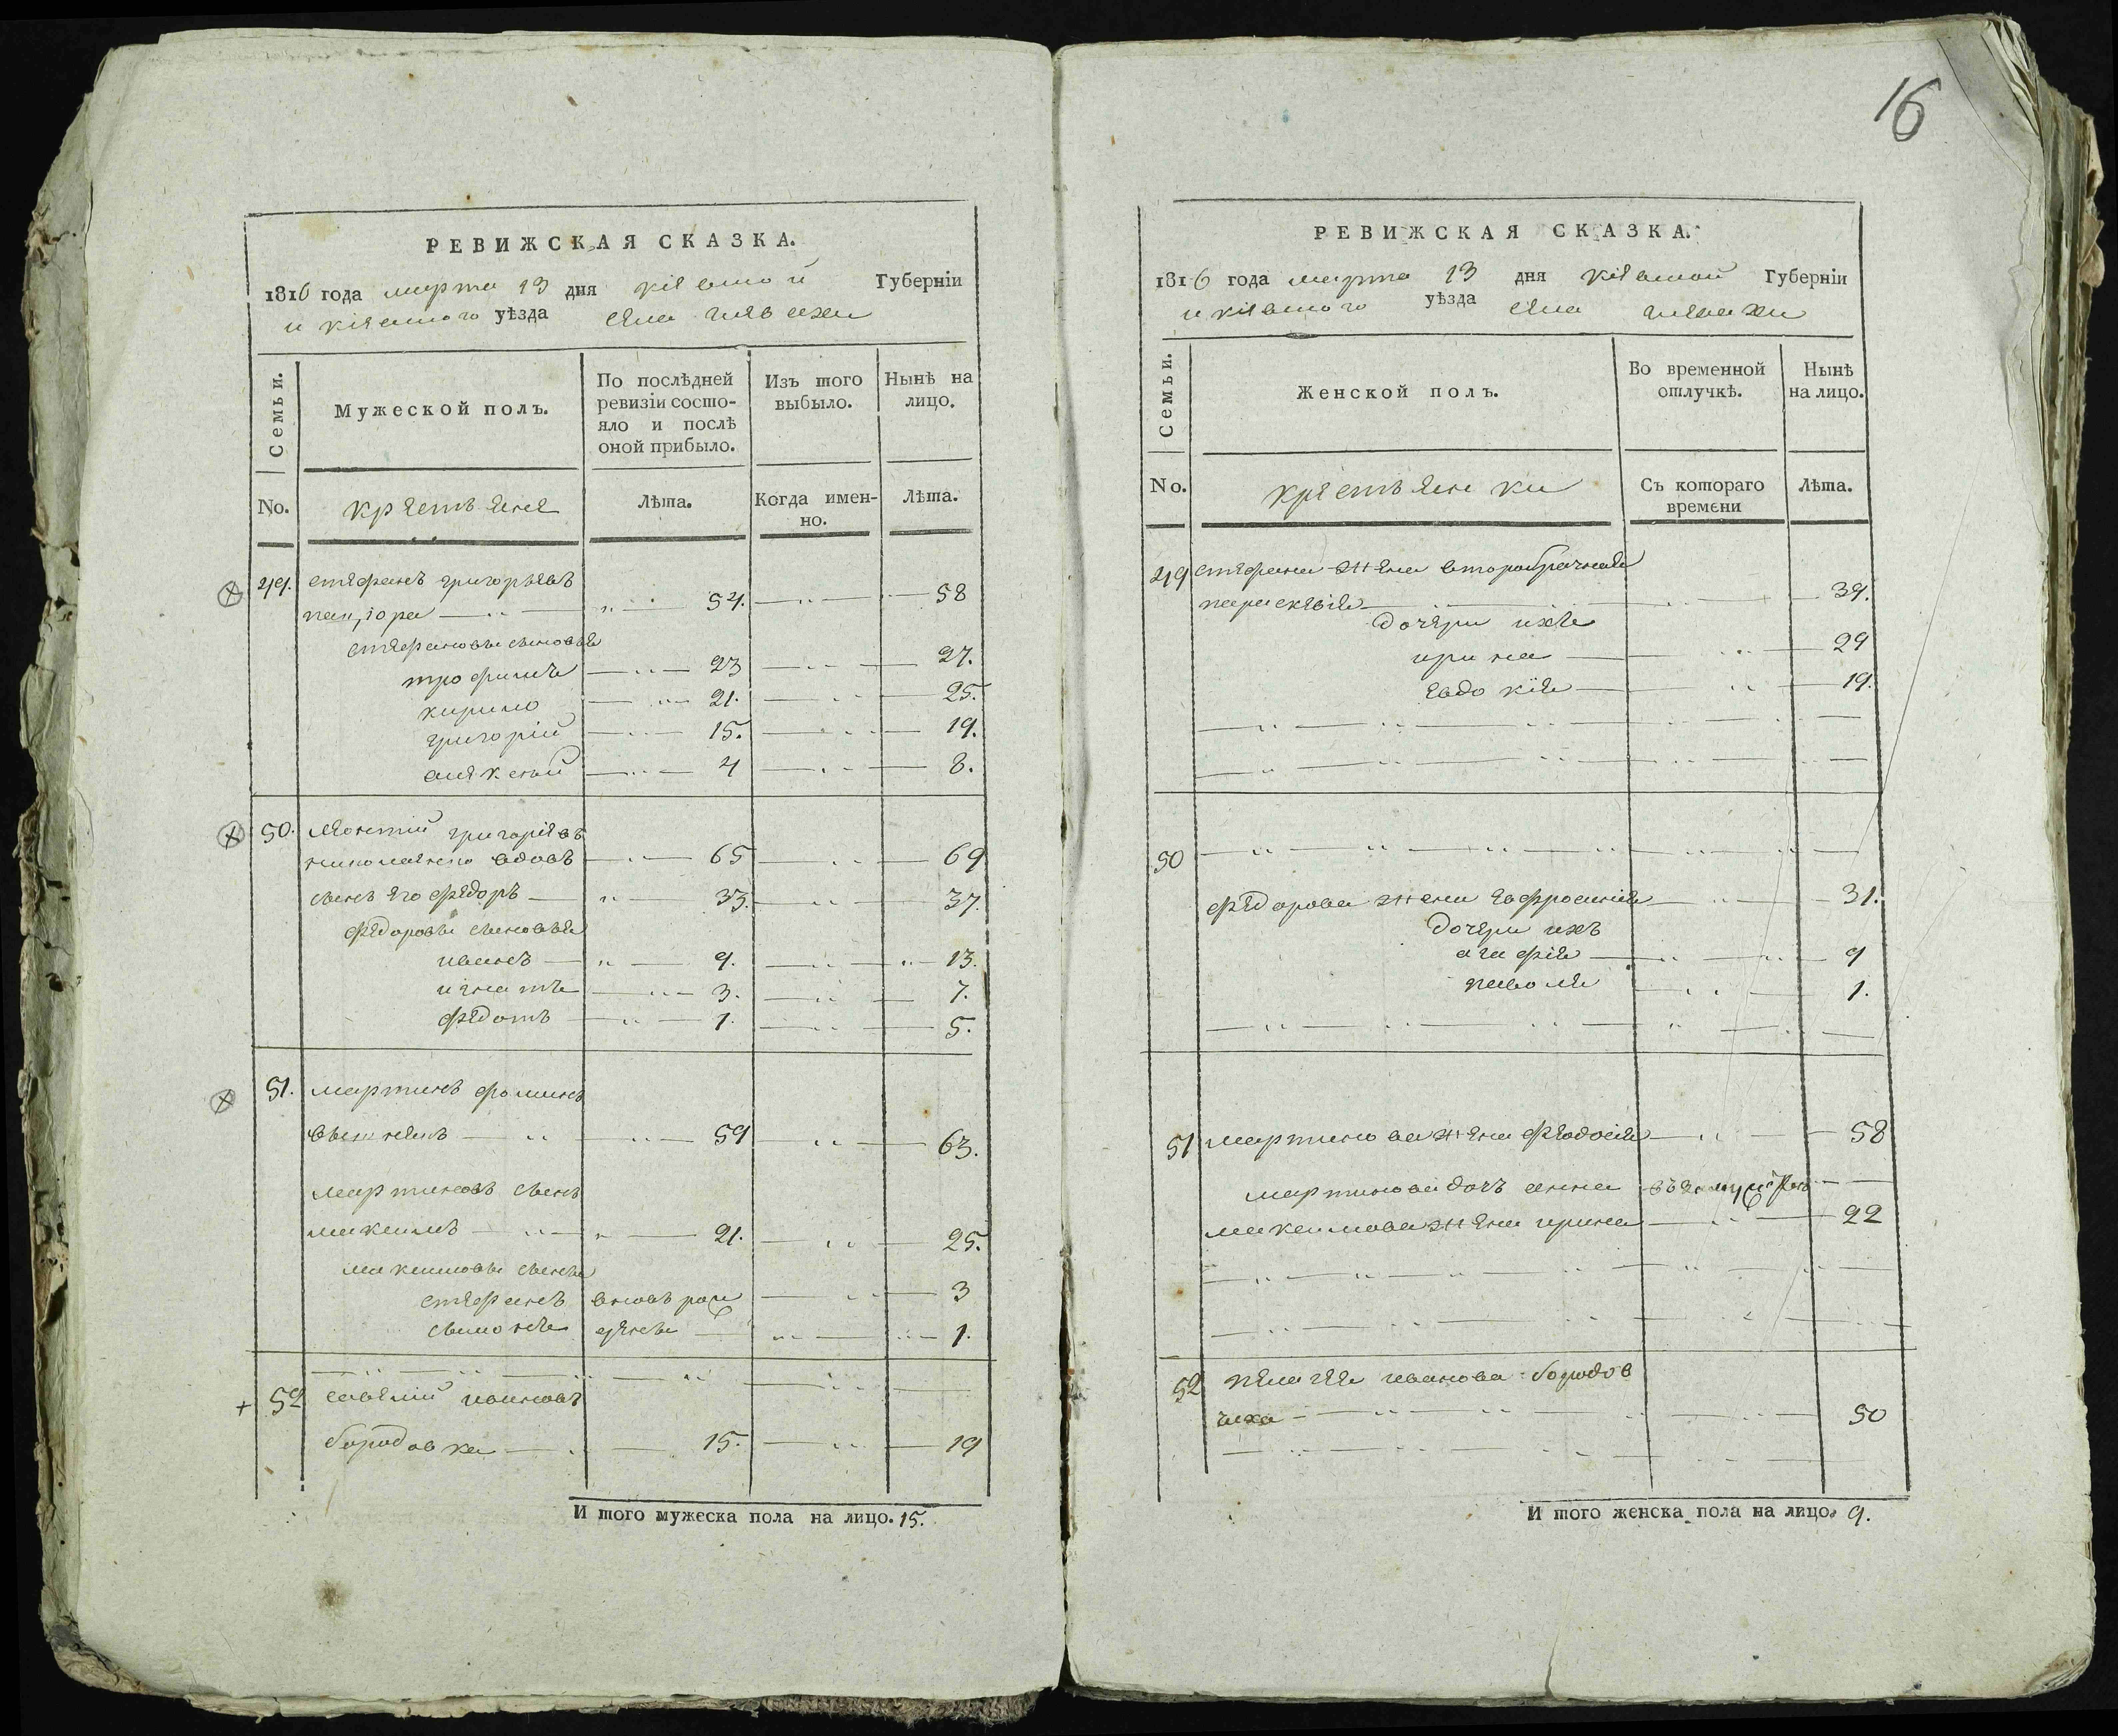 РЕВИЖСКАЯ СКАЗКА.
1816 года марта 13 дня кіевской Губерніи
и кіевского уѣзда села глевахи
Семьи.
Мужеской полъ.
По послѣдней ревизіи состо-
яло и послѣ
оной прибыло.
Изъ того
выбыло.
Нынѣ на
лицо.
No.
крестьяне
Лѣта.
Когда имен-
но.
Лѣта.
49. стефанъ григорьевъ
54. 58
стефановы сыновья
трофимъ 23 27.
кирило 21. 25.
григорій 15. 19.
алексѣй 4 8.
50. леонтій григоріевъ
вдовъ 65 69
сынъ его федоръ 33. 37.
федоровы сыновья
иванъ 9. 13.
игнатъ 3. 7.
федотъ 1. 5.
51. мартинъ фоминъ
59 63.
мартиновъ сынъ
максимъ 21. 25.
максимовы сыны
стефанъ вновь рож 3
симонъ денъ 1.
52 савелій ивановъ
бородавка 15. 19
И того мужеска пола на лицо. 15.
16
РЕВИЖСКАЯ СКАЗКА.
1816 года марта 13 дня кіевской Губерніи
и кіевского уѣзда села глевахи
Семьи.
Женской полъ.
Во временной
отлучкѣ.
Нынѣ
на лицо.
No.
крестьянки
Съ котораго
времени
Лѣта.
49 стефана жена второбрачная
параскевія 39.
дочери ихъ
ирина 29
евдокія 19.
50
федорова жена евфросинія 31.
дочери ихъ
агафія 9
1.
51 мартинова жена феодосія 58
мартинова дочъ анна
максимова жена ирина 22
52 пелагея иванова бородав
чиха 50
И того женска пола на лицо. 9.